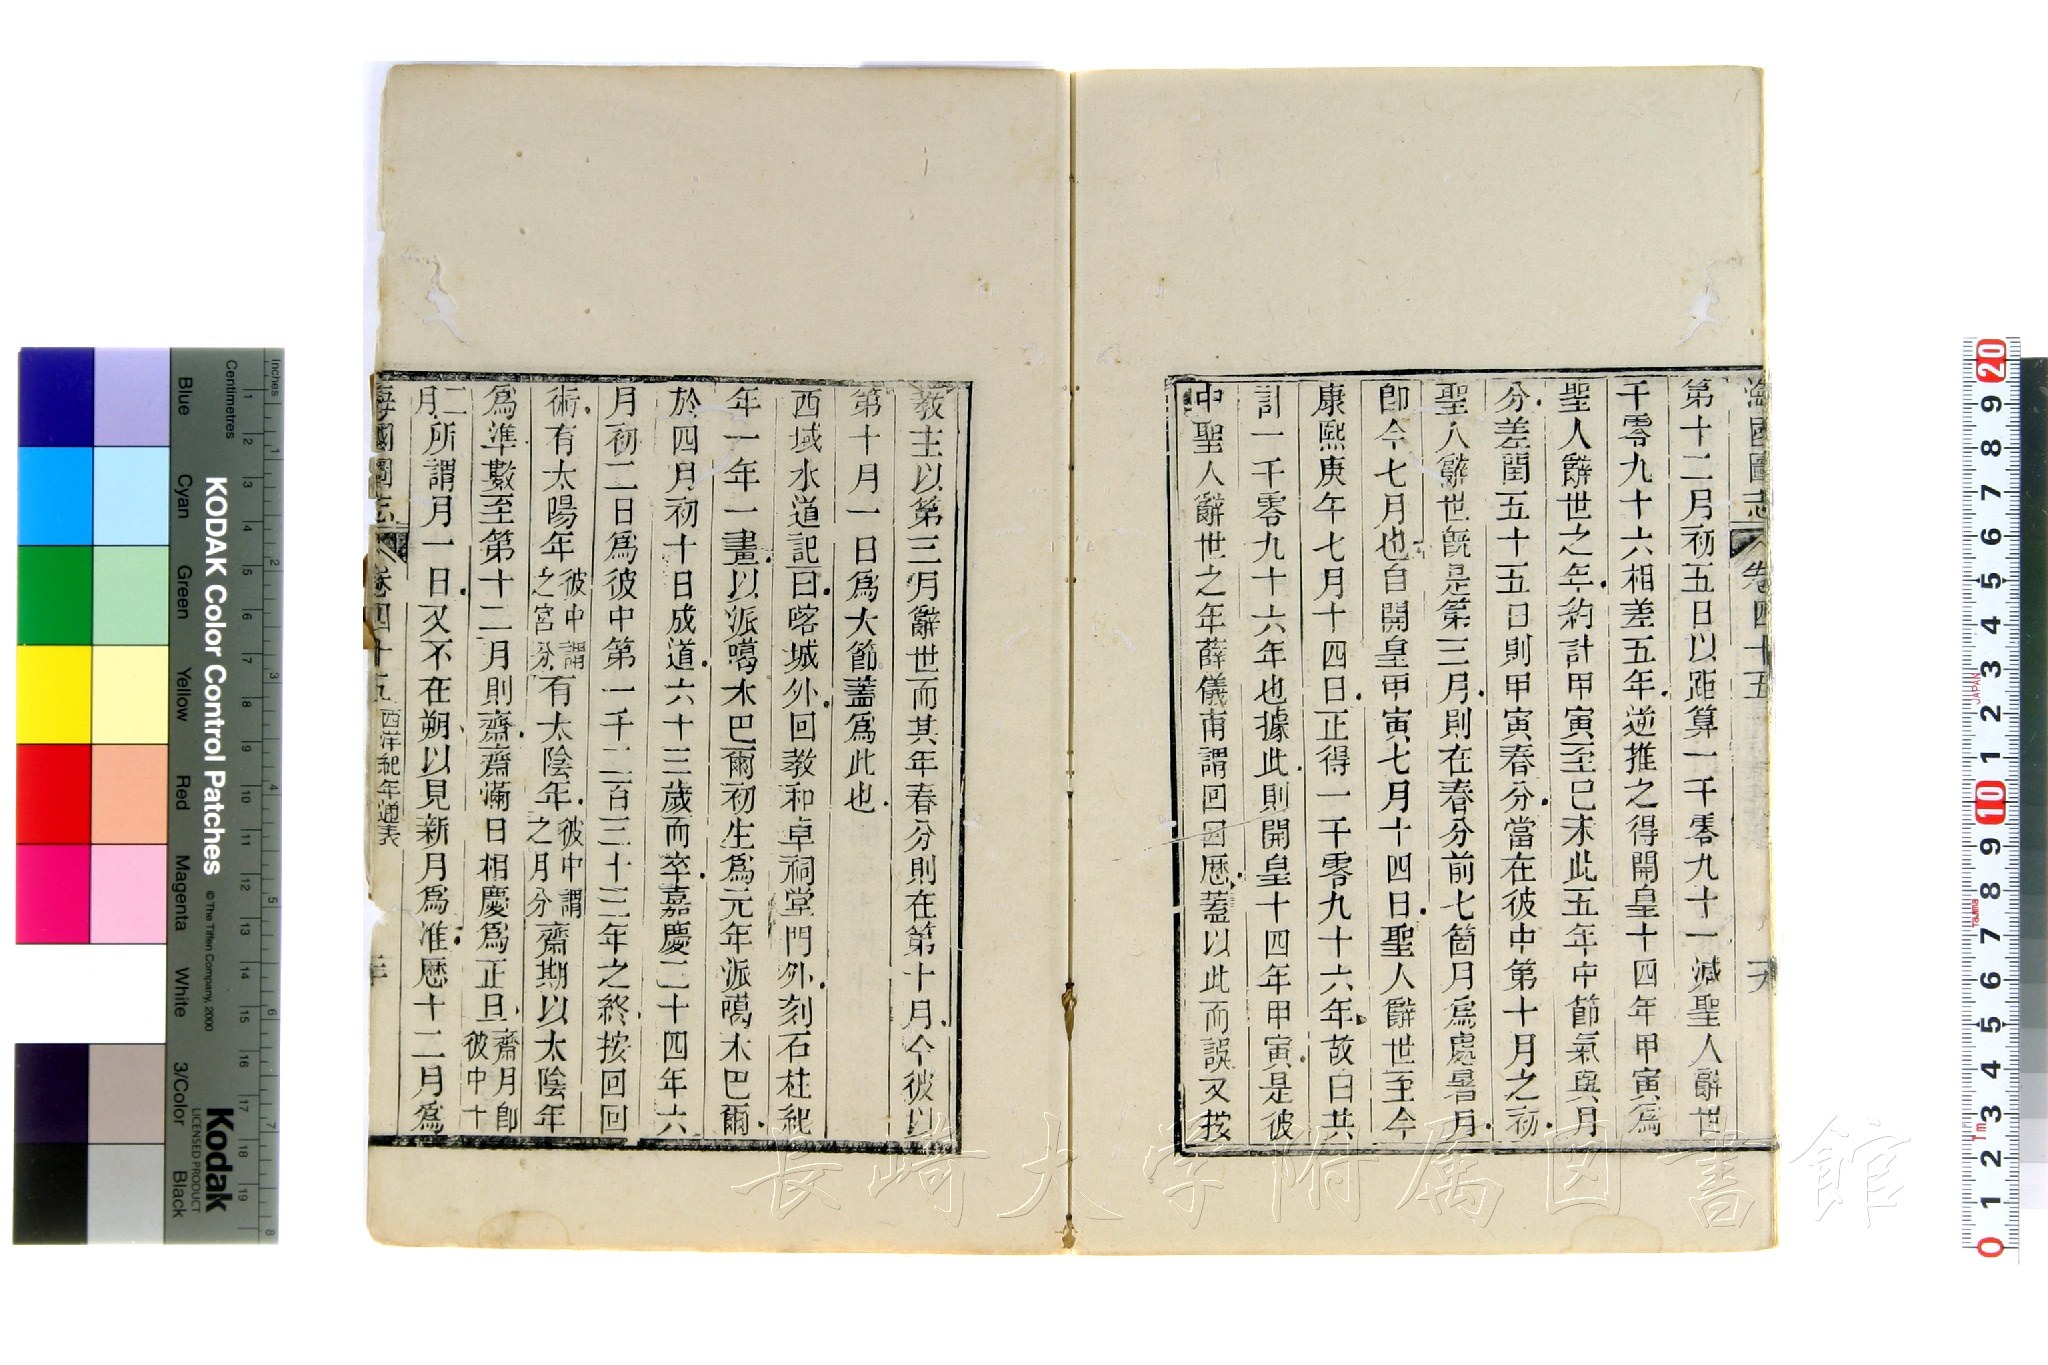 海國圖志 卷四十五
第十二月初五日以距算一千零九十一減聖人辭世
千零九十六相差五年逆推之得開皇十四年甲寅爲
聖人辭世之年約計甲寅至己未此五年中節氣與月
分差閏五十五日則甲寅春分當在彼中第十月之初
聖人辭世旣是第三月則在春分前七箇月爲處暑月
卽今七月也自開皇甲寅七月十四日聖人辭世至今
康熙庚午七月十四日正得一千零九十六年故曰共
計一千零九十六年也據此則開皇十四年甲寅是彼
中聖人辭世之年薛儀甫謂回回厯蓋以此而誤又按
教主以第三月辭世而其年春分則在第十月今彼以
第十月一日爲大節蓋爲此也
西域水道記曰喀城外回教和卓祠堂門外刻石柱紀
年一年一畫以派噶木巴爾初生爲元年派噶木巴爾
於四月初十日成道六十三歲而卒嘉慶二十四年六
月初二日爲彼中第一千二百三十三年之終按回回
術有太陽年彼中謂之宮分有太陰年彼中謂之月分齋期以太陰年
爲準數至第十二月則齋齋滿日相慶爲正旦齋月卽彼中十
二月所謂月一日又不在朔以見新月爲准厯十二月爲
海國圖志 卷四十五 西洋紀年通表
長崎大学附属図書館
KODAK Color Control Patches
© The Tiffen Company, 2000
Kodak
LICENSED PRODUCT
Inches
Centimetres
Blue
Cyan
Green
Yellow
Red
Magenta
White
3/Color
Black
1 2 3 4 5 6 7 8
1 2 3 4 5 6 7 8 9 10 11 12 13 14 15 16 17 18 19
20 9 8 7 6 5 4 3 2 1 10 9 8 7 6 5 4 3 2 1 0
JAPAN
Tajima
1m